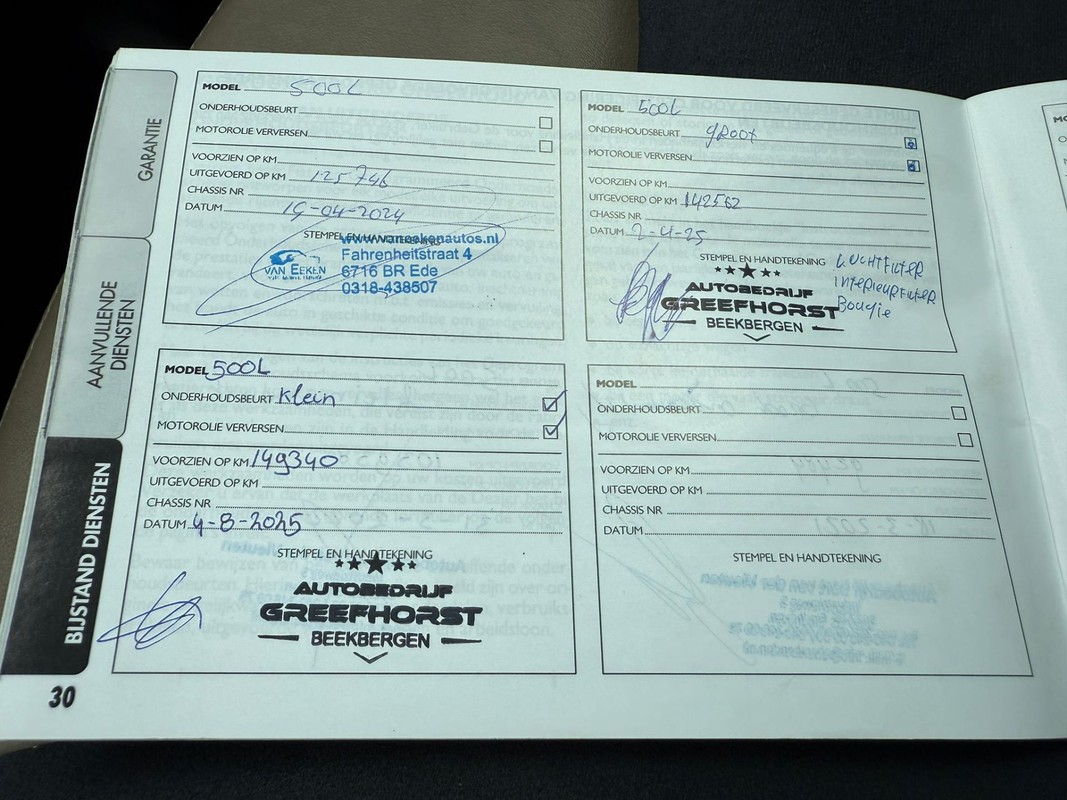 GARANTIE
AANVULLENDE
DIENSTEN
BIJSTAND DIENSTEN
MODEL 500L
ONDERHOUDSBEURT
MOTOROLIE VERVERSEN
VOORZIEN OP KM
UITGEVOERD OP KM 125 746
CHASSIS NR
DATUM 19-04-2024
STEMPEL EN HANDTEKENING
www.vaneekenautos.nl
VAN EEKEN
Fahrenheitstraat 4
6716 BR Ede
0318-438507
MODEL 500L
ONDERHOUDSBEURT groot
MOTOROLIE VERVERSEN
VOORZIEN OP KM
UITGEVOERD OP KM 142562
CHASSIS NR
DATUM 2-4-25
STEMPEL EN HANDTEKENING
LUCHTFILTER
INTERIEURFILTER
Bougie
AUTOBEDRIJF
GREEFHORST
BEEKBERGEN
MODEL 500L
ONDERHOUDSBEURT Klein
MOTOROLIE VERVERSEN
VOORZIEN OP KM 149340
UITGEVOERD OP KM
CHASSIS NR
DATUM 4-8-2025
STEMPEL EN HANDTEKENING
AUTOBEDRIJF
GREEFHORST
BEEKBERGEN
MODEL
ONDERHOUDSBEURT
MOTOROLIE VERVERSEN
VOORZIEN OP KM
UITGEVOERD OP KM
CHASSIS NR
DATUM
STEMPEL EN HANDTEKENING
30